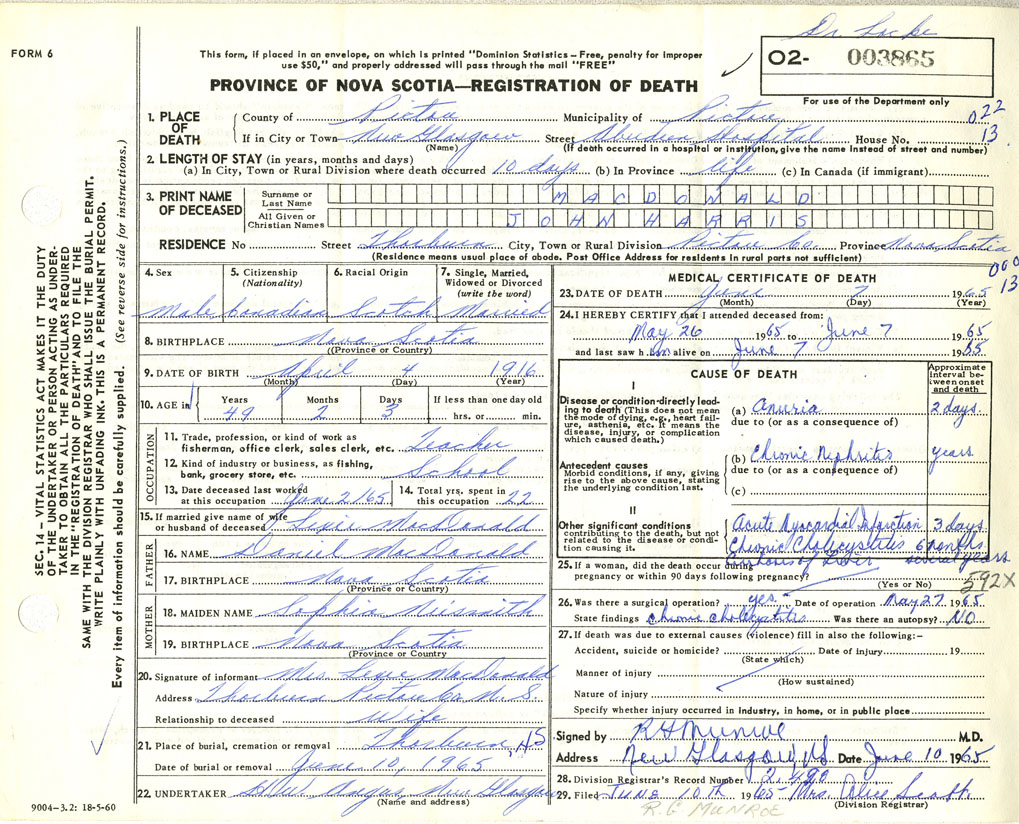 Dr. Locke
FORM 6
This form, if placed in an envelope, on which is printed "Dominion Statistics – Free, penalty for improper
use $50," and properly addressed will pass through the mail "FREE"
O2- 003865
PROVINCE OF NOVA SCOTIA—REGISTRATION OF DEATH
For use of the Department only
1. PLACE OF DEATH
County of Pictou Municipality of Pictou 022
If in City or Town New Glasgow Street Aberdeen Hospital House No. 13
(Name) (If death occurred in a hospital or institution, give the name instead of street and number)
2. LENGTH OF STAY (in years, months and days)
(a) In City, Town or Rural Division where death occurred 10 days (b) In Province life (c) In Canada (if immigrant)
3. PRINT NAME OF DECEASED
Surname or Last Name MACDONALD
All Given or Christian Names JOHN HARRIS
RESIDENCE No Street Thorburn City, Town or Rural Division Pictou Co. Province Nova Scotia
(Residence means usual place of abode. Post Office Address for residents in rural parts not sufficient)
000
13
4. Sex
Male
5. Citizenship
(Nationality)
Canadian
6. Racial Origin
Scotch
7. Single, Married,
Widowed or Divorced
(write the word)
Married
8. BIRTHPLACE Nova Scotia
(Province or Country)
9. DATE OF BIRTH April 4 1916
(Month) (Day) (Year)
10. AGE in
Years Months Days If less than one day old
49 2 3 hrs. or min.
OCCUPATION
11. Trade, profession, or kind of work as
fisherman, office clerk, sales clerk, etc. Teacher
12. Kind of industry or business, as fishing,
bank, grocery store, etc. School
13. Date deceased last worked
at this occupation June 2/65
14. Total yrs. spent in
this occupation 22
15. If married give name of wife
or husband of deceased Lexie MacDonald
FATHER
16. NAME Daniel MacDonald
17. BIRTHPLACE Nova Scotia
(Province or Country)
MOTHER
18. MAIDEN NAME Sophia
19. BIRTHPLACE Nova Scotia
(Province or Country)
20. Signature of informant Mrs Lexie MacDonald
Address Thorburn Pictou Co. N.S.
Relationship to deceased Wife
21. Place of burial, cremation or removal Thorburn, NS
Date of burial or removal June 10, 1965
22. UNDERTAKER Angus New Glasgow
(Name and address)
MEDICAL CERTIFICATE OF DEATH
23. DATE OF DEATH June 7 1965
(Month) (Day) (Year)
24. I HEREBY CERTIFY that I attended deceased from:
May 26 1965 to June 7 1965
and last saw him alive on June 7 1965
CAUSE OF DEATH
Approximate
interval be-
tween onset
and death
I
Disease or condition directly lead-
ing to death (This does not mean
the mode of dying, e.g., heart fail-
ure, asthenia, etc. It means the
disease, injury, or complication
which caused death.)
(a) Anuria 2 days.
due to (or as a consequence of)
Antecedent causes
Morbid conditions, if any, giving
rise to the above cause, stating
the underlying condition last.
(b) Chronic Nephritis years
due to (or as a consequence of)
(c)
II
Other significant conditions
contributing to the death, but not
related to the disease or condi-
tion causing it.
Acute Myocardial Infarction 3 days.
Chronic Cholecystitis 6 months
Cirrhosis of Liver several years
25. If a woman, did the death occur during
pregnancy or within 90 days following pregnancy?
(Yes or No)
592X
26. Was there a surgical operation? yes. Date of operation May 27 1965
State findings Chronic Cholecystitis Was there an autopsy? NO
27. If death was due to external causes (violence) fill in also the following:–
Accident, suicide or homicide? Date of injury 19
(State which)
Manner of injury
(How sustained)
Nature of injury
Specify whether injury occurred in industry, in home, or in public place
Signed by R G Munroe M.D.
Address New Glasgow NS Date June 10 1965
28. Division Registrar's Record Number
29. Filed June 10th 1965 Mrs. Alice
(Division Registrar)
R.G MUNROE
SEC. 14 – VITAL STATISTICS ACT MAKES IT THE DUTY
OF THE UNDERTAKER OR PERSON ACTING AS UNDER-
TAKER TO OBTAIN ALL THE PARTICULARS REQUIRED
IN THE "REGISTRATION OF DEATH" AND TO FILE THE
SAME WITH THE DIVISION REGISTRAR WHO SHALL ISSUE THE BURIAL PERMIT.
WRITE PLAINLY WITH UNFADING INK. THIS IS A PERMANENT RECORD.
Every item of information should be carefully supplied. (See reverse side for instructions.)
9004–3.2: 18-5-60